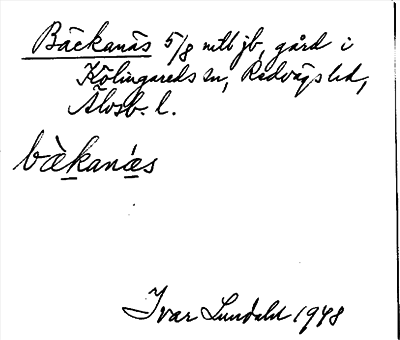 Bäckanäs 5/8 mtl jb, gård i
Kölingareds sn, Redvägs hd,
Älvsb. l.
bàkanás
Ivar Lundahl 1948